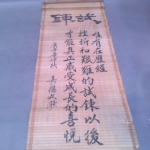 試鍊
唯有在歷經
挫折和艱難的試鍊以後
才能真正感受成長的喜悅